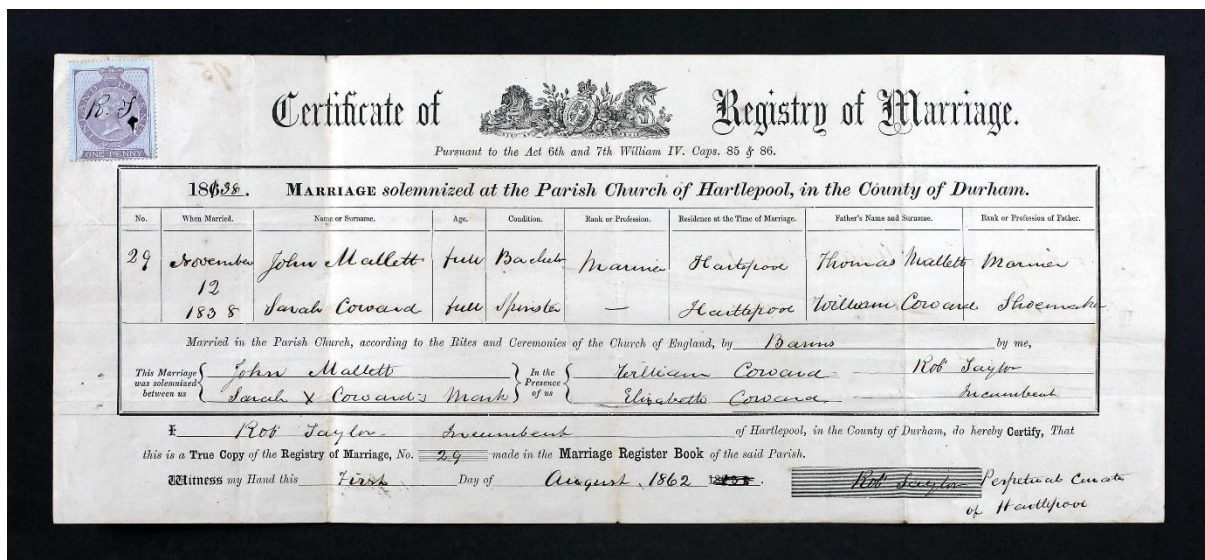 INLAND REVENUE
R. T.
ONE PENNY
Certificate of Registry of Marriage.
Pursuant to the Act 6th and 7th William IV. Caps. 85 & 86.
1838. MARRIAGE solemnized at the Parish Church of Hartlepool, in the County of Durham.
No. When Married. Name or Surname. Age. Condition. Rank or Profession. Residence at the Time of Marriage. Father's Name and Surname. Rank or Profession of Father.
29 November John Mallett full Bachelor Mariner Hartlepool Thomas Mallett Mariner
12
1838 Sarah Coward full Spinster — Hartlepool William Coward Shoemaker
Married in the Parish Church, according to the Rites and Ceremonies of the Church of England, by Banns by me,
This Marriage was solemnized between us John Mallett In the Presence of us William Coward Rob Taylor
Sarah X Coward's Mark Elizabeth Coward Incumbent
I Rob Taylor Incumbent of Hartlepool, in the County of Durham, do hereby Certify, That
this is a True Copy of the Registry of Marriage, No. 29 made in the Marriage Register Book of the said Parish.
Witness my Hand this First Day of August 1862 Rob Taylor Perpetual Curate
of Hartlepool